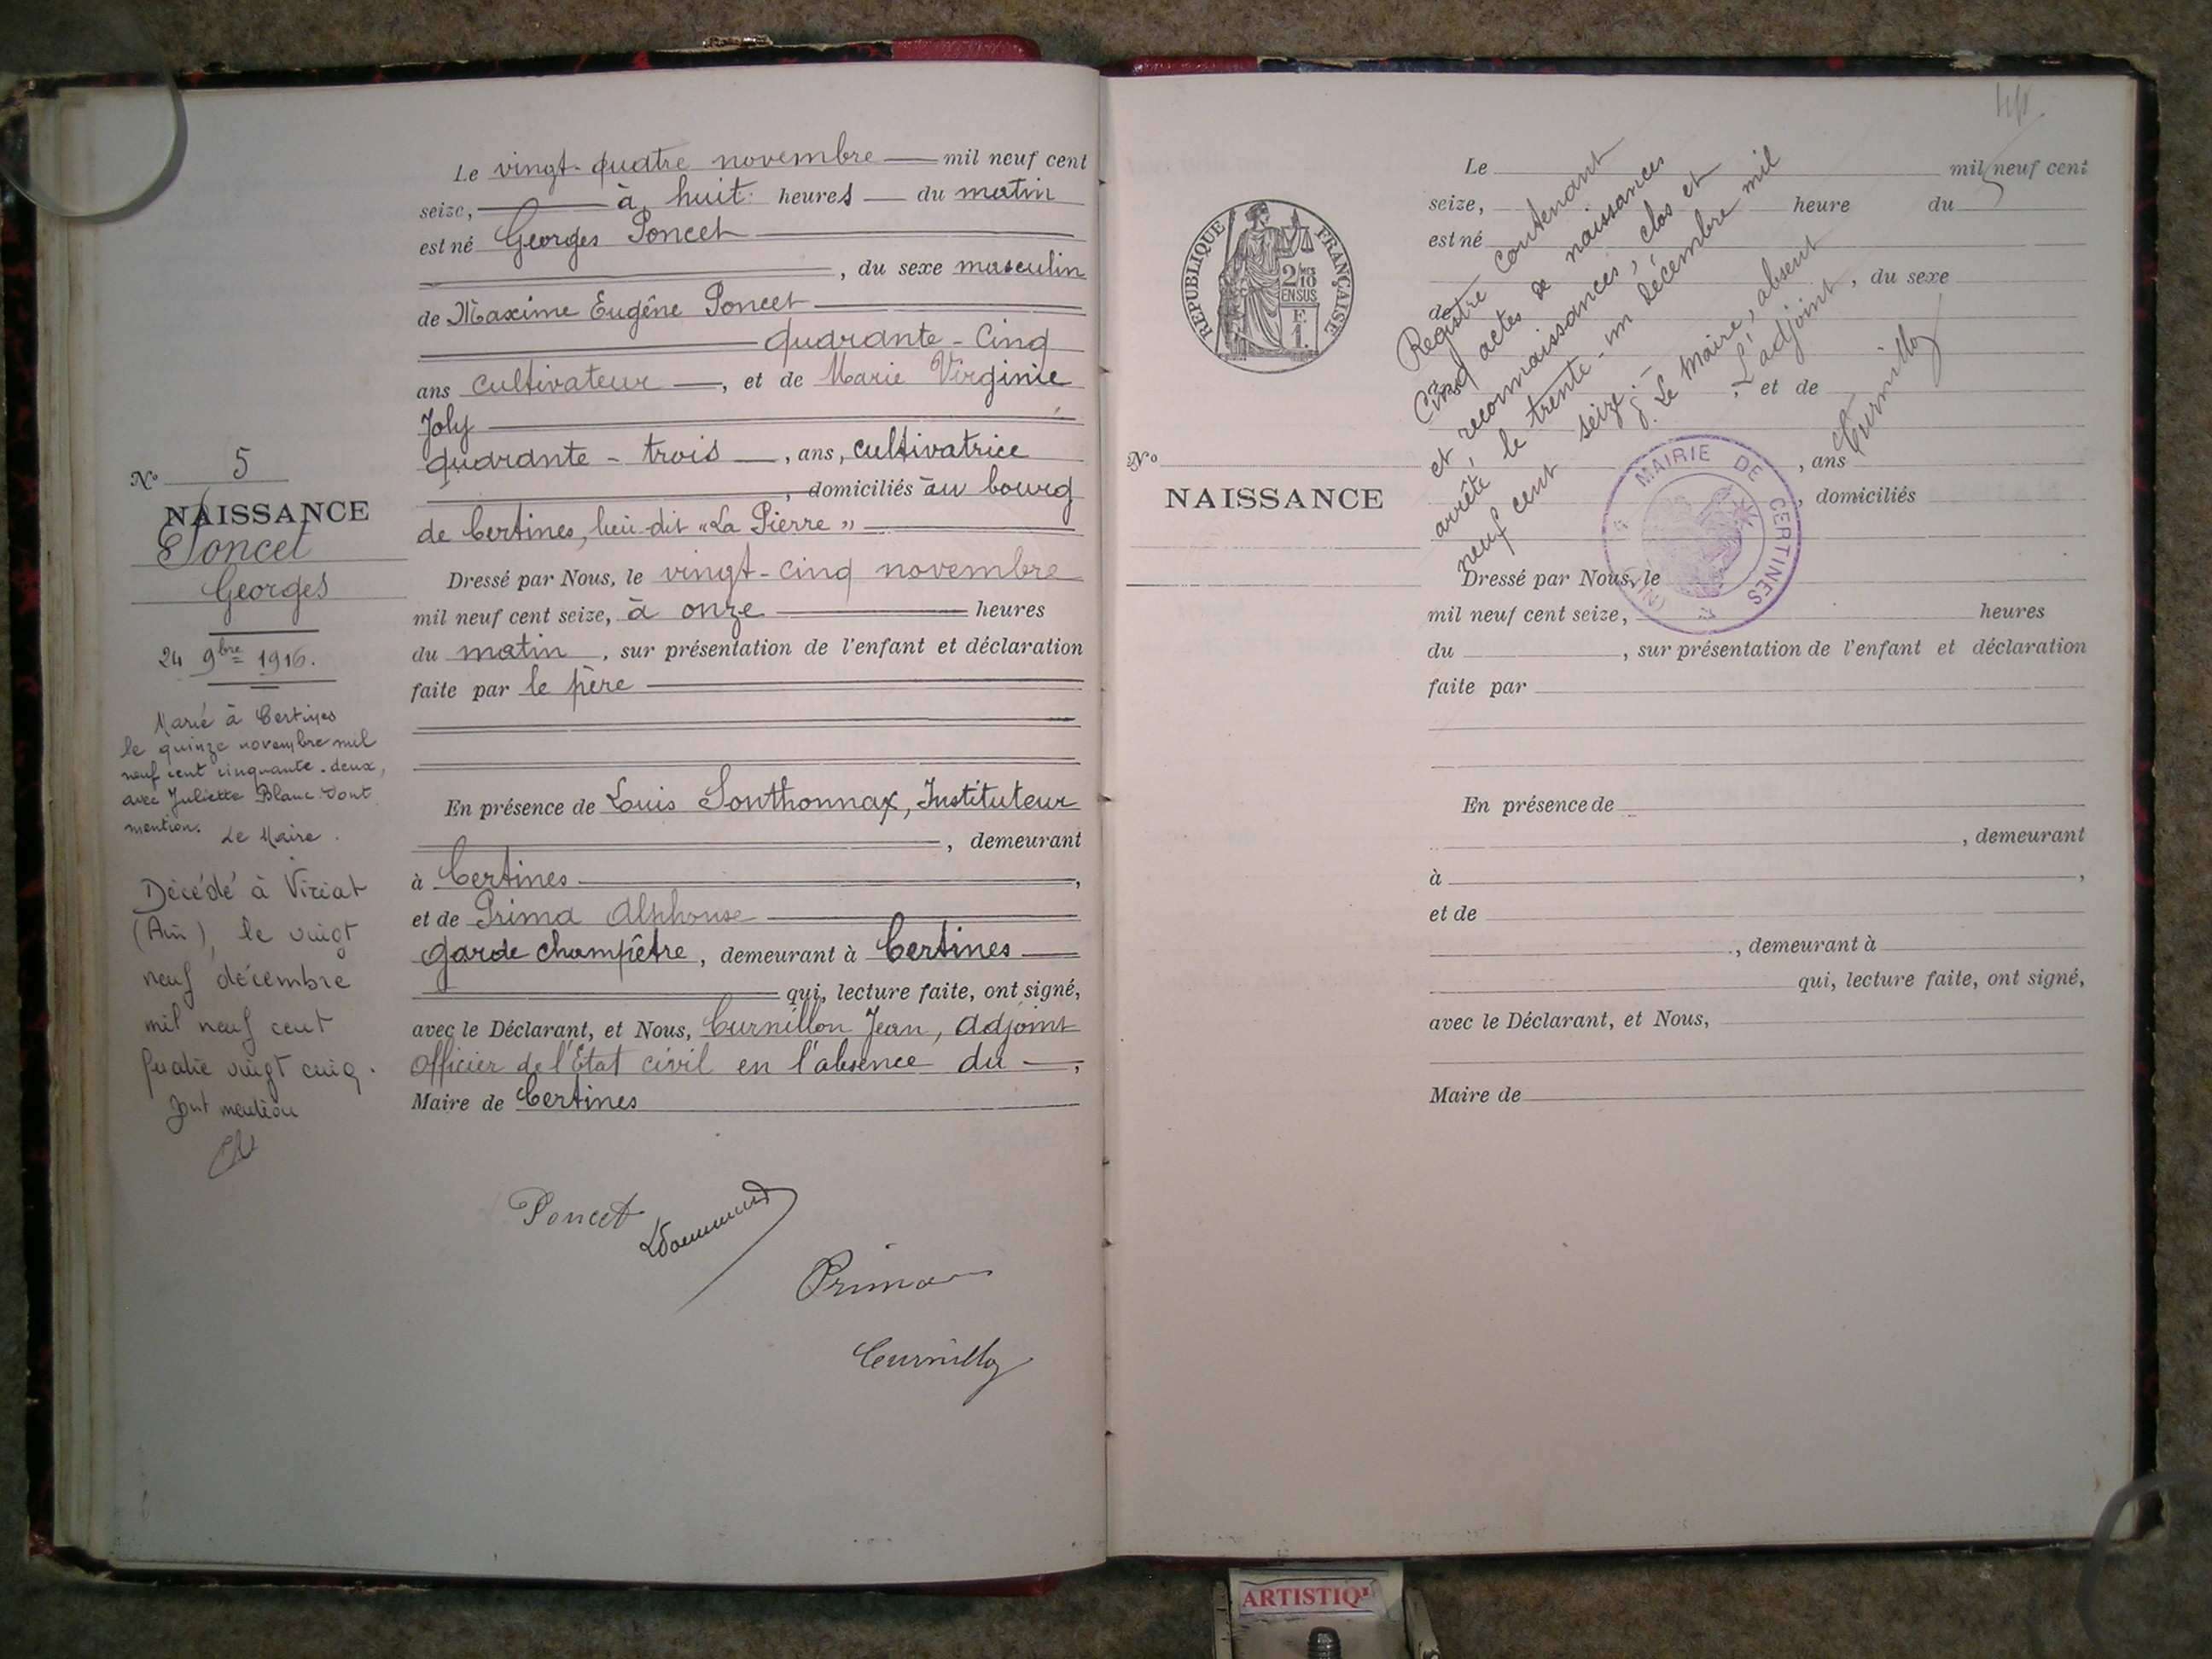 Le vingt-quatre novembre mil neuf cent
seize, à huit heures du matin
est né Georges Poncet
, du sexe masculin
de Maxime Eugène Poncet
quarante-cinq
ans cultivateur, et de Marie Virginie
Joly
quarante-trois, ans, cultivatrice
, domiciliés au bourg
de Certines, lieu-dit "La Pierre"
Dressé par Nous, le vingt-cinq novembre
mil neuf cent seize, à onze heures
du matin, sur présentation de l'enfant et déclaration
faite par le père
En présence de Louis Sonthonnax, Instituteur
, demeurant
à Certines,
et de Prima Alphonse
garde champêtre, demeurant à Certines
qui, lecture faite, ont signé,
avec le Déclarant, et Nous, Curnillon Jean, adjoint
Officier de l'Etat civil en l'absence du,
Maire de Certines
Poncet
Prima
Curnillon
No 5
NAISSANCE
Poncet
Georges
24 9bre 1916.
Marié à Certines
le quinze novembre mil
neuf cent cinquante-deux,
avec Juliette Blanc. Dont
mention. Le Maire.
Décédé à Viriat
(Ain), le vingt
neuf décembre
mil neuf cent
quatre vingt cinq.
Dont mention
RÉPUBLIQUE FRANÇAISE
2/10
EN SUS
No
NAISSANCE
Le mil neuf cent
seize, heure du
est né
, du sexe
de
, et de
, ans
, domiciliés
Dressé par Nous, le
mil neuf cent seize, heures
du , sur présentation de l'enfant et déclaration
faite par
En présence de
, demeurant
à ,
et de
, demeurant à
qui, lecture faite, ont signé,
avec le Déclarant, et Nous,
Maire de
Registre contenant
Cinq actes de naissances
et reconnaissances, clos et
arrêté, le trente-un décembre mil
neuf cent seize.-
Le Maire, absent
L'adjoint,
Curnillon
MAIRIE DE CERTINES
(AIN)
ARTISTIQ